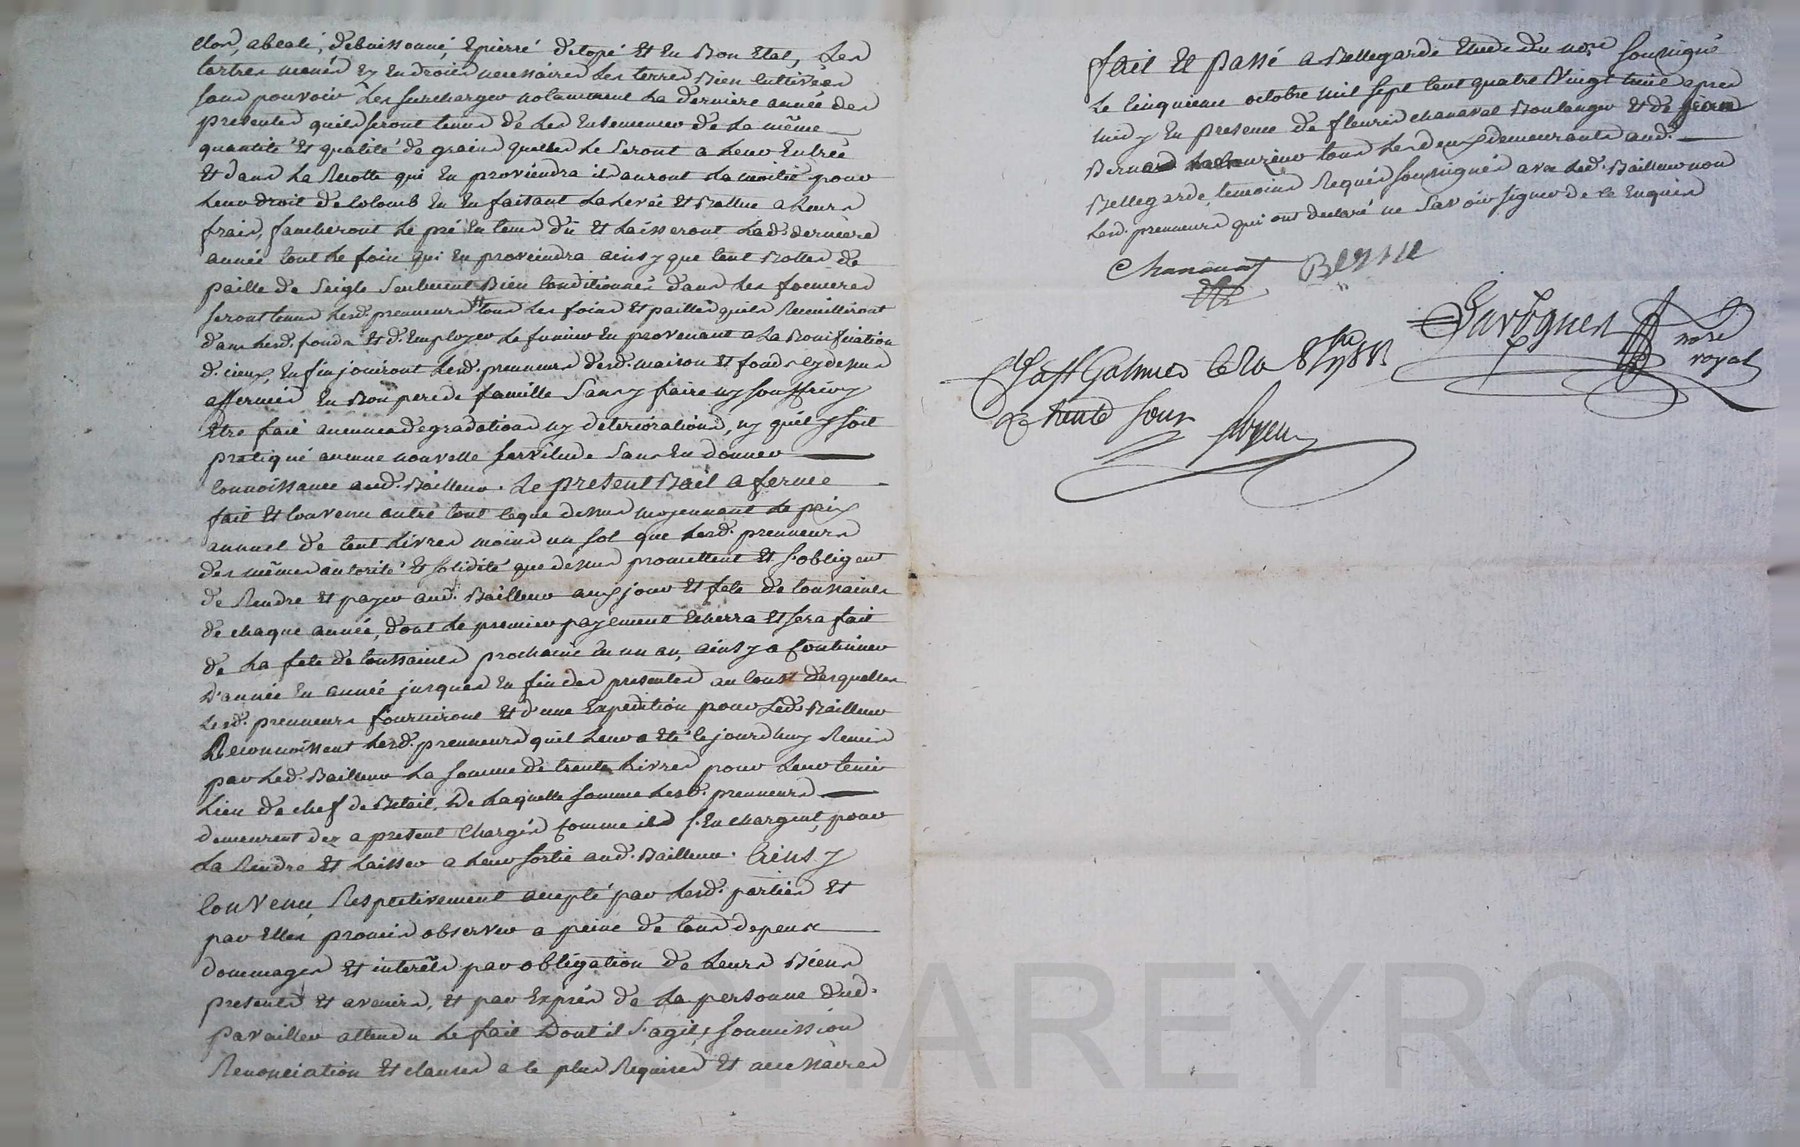 clos, abealé, debuissonné, epierré detopé et en Bon Etat, Les
tertres menés Ez Endroits necessaires Les terres Bien Cultivées
sans pouvoir Les surcharger notamment La derniere année des
presentes quils seront tenus de Les Ensemencer de La même
quantité Et qualité de grains quelles Le seront a Leur Entrée
Et dans La Recolte qui En proviendra ils auront La moitié pour
Leur droit de Colomb En En faisant La Levée Et Battue a Leurs
frais, faucheront Le pré En tems dû Et Laisseront Lad. derniere
année tout Le foin qui En proviendra ainsy que Cent Bottes de
paille de Seigle Seulement Bien Conditionnés dans Les fenieres
seront tenus Lesd. prenneurs tous Les foins Et pailles quils Recueilliront
dans Lesd. fonds Et d'Employer Le fumier En provenant a La Bonification
d'iceux, Enfin jouiront Lesd. prenneurs desd. maison Et fonds cydessus
affermés En Bon pere de famille Sans y faire ny souffrir y
Etre fait aucunes degradations ny deteriorations, ny quil y soit
pratiqué aucune nouvelle servitude Sans En donner
Connoissance aud. Bailleur. Le present Bail a ferme
fait Et Convenu outre tout Ceque dessus moyennant Le prix
annuel de Cent Livres moins un sol que Lesd. prenneurs
des mêmes autorité Et solidité que dessus promettent Et s'obligent
de Rendre Et payer aud. Bailleur aux jour Et fete de toussaints
de chaque année, dont Le premier payement Echerra Et sera fait
de La fete de toussaints prochaine En un an, ainsy a Continuer
D'année En année jusques En fin des presentes au Coust desquelles
Lesd. prenneurs fourniront Et d'une Expedition pour Led. Bailleur
Reconnoissent Lesd. prenneurs quil Leur a Eté Cejourdhuy Remis
par Led. Bailleur La somme de trente Livres pour Leur tenir
Lieu de chef de Betail, De Laquelle somme Lesd. prenneurs
demeurent dez a present Chargés Comme ils s'En chargent, pour
La Rendre Et Laisser a Leur sortie aud. Bailleur. Ainsy
Convenu, Respectivement accepté par Lesd. parties Et
par Elles promis observer a peine de tous depens
dommages Et interêts par obligation de Leurs Biens
presents Et avenirs, Et par Exprés de La personne dud.
pavailler attendu Le fait Dont il S'agit, soumission
Renonciation Et clauses a Ce plus Requises Et necessaires
fait Et passé a Bellegarde Etude du nore soussigné
Le Cinquieme octobre mil sept Cent quatre Vingt huit apres
midy En presence de fleury chanaval Boulanger Et de jean
Bernard tous Les deux demeurants aud.
Bellegarde, temoins Requis soussignés avec Led. Bailleur non
Lesd. prenneurs qui ont declaré ne Savoir signer de Ce Enquis
Chanavat
nore
royal
Galmier Le 20 8bre 1788
R trente sous
CHAREYRON